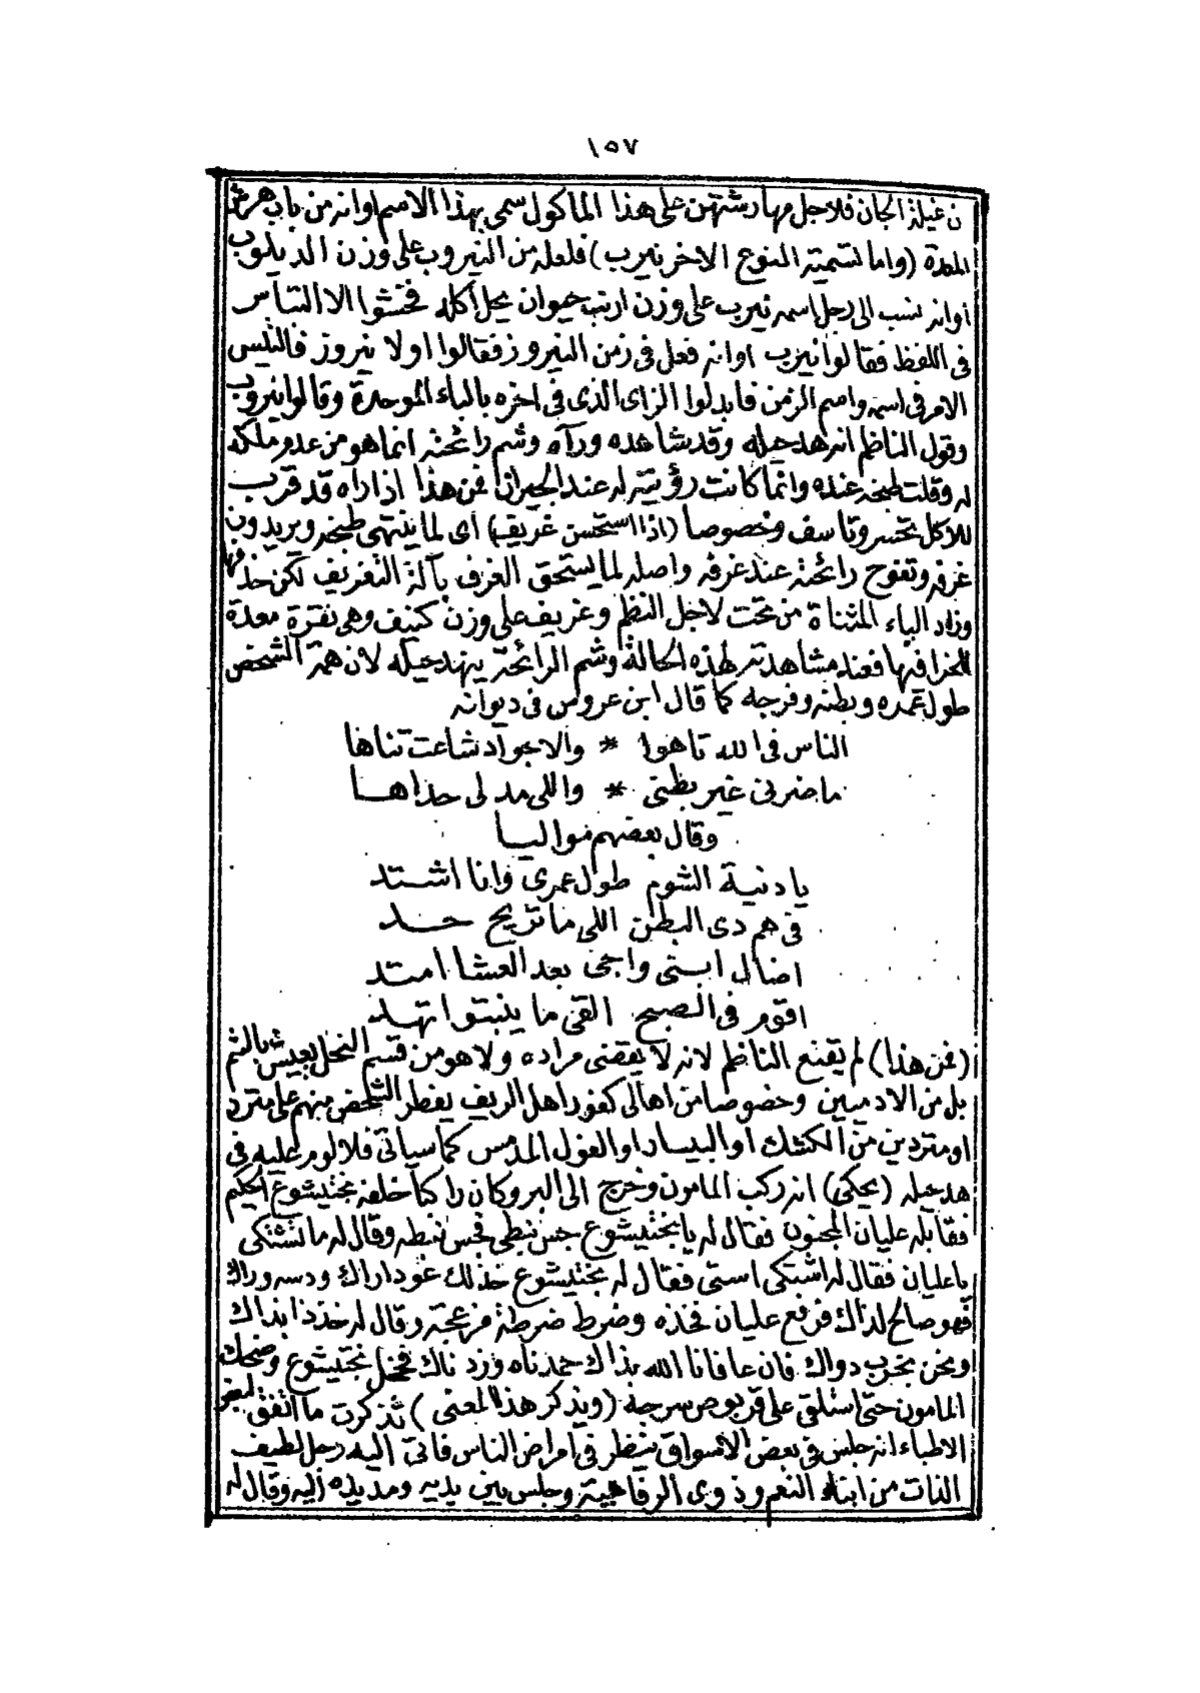 ١٥٧
ن غيلة الجان فلاجل مهارشتهن على هذا الماكول سمى بهذا الاسم اوانه من باب هرش
المعدة (واما تسميته النوع الاخر نيرب) فلعله من النيروب على وزن الديلوب
اوانه نسب الى رجل اسمه نيرب على وزن ارنب حيوان يحل أكله فخشوا الا التباس
فى اللفظ فقالوا نيرب اوانه فعل فى زمن النيروز فقالوا اولا نيروز فالتبس
الامر فى اسمه واسم الزمن فابدلوا الزاى الذى فى اخره بالباء الموحدة وقالوا نيروب
وقول الناظم انه هد حيله وقد شاهده ورآه وشم رائحته انما هو من عدم ملكه
له وقلت طبخه عنده وانما كانت رؤيته له عند الجيران فمن هذا اذا راه قد قرب
للاكل يتحسر وتاسف وخصوصا (اذا استحسن غريف) اى لما ينتهى طبخه ويريدون
غرفه وتفوح رائحته عند غرفه واصله لما يستحق الغرف بآلة التغريف لكن حذفها
وزاد الياء المثناة من تحت لاجل النظم وغريف على وزن كنيف وهى نقرة معدة
للخرا فيها فعند مشاهدته لهذه الحالة وشم الرائحة ينهد حيله لان همة الشخص
طول عمره وبطنه وفرجه كما قال ابن عروس فى ديوانه
الناس فى الله تاهوا * والاجواد شاعت تناها
ماضرنى غير بطنى * واللى مد لى حداها
وقال بعضهم مواليا
يا دنية الشوم طول عمرى وانا اشتد
فى هم دى البطن اللى ما تريح حد
اضال ابنى واجى بعد العشا امتد
اقوم فى الصبح القى ما ينبتوا تهد
(فمن هذا) لم يقنع الناظم لانه لا يقضى مراده ولا هو من قسم النحل يعيش بالشم
بل من الادميين وخصوصا من اهالى كفور اهل الريف يفطر الشخص منهم على مترد
او متردين من الكشك او البيسار او الفول المدمس كما سياتى فلا لوم عليه فى
هد حيله (يحكى) انه ركب المامون وخرج الى البر وكان راكبا خلفه بختيشوع الحكيم
فقابله عليان المجنون فقال له يا بختيشوع جس نبطى فجس نبطه وقال له ما تشتكى
يا عليان فقال له اشتكى استى فقال له بختيشوع خذ لك عود اراك ودسه وراك
فهو صالح لذاك فرفع عليان فخذه وضرط ضرطة مزعجة وقال له خذ ذا بذاك
ونحن نجرب دواك فان عافانا الله بذاك حمدناه وزدناك فخجل بختيشوع وضحك
المامون حتى استلقى على قربوص سرجه (ويذكر هذا المعنى) تذكرت ما اتفق لبعض
الاطباء انه جلس فى بعض الاسواق ينظر فى امراض الناس فاتى اليه رجل لطيف
الذات من ابناء النعم وذوى الرفاهية وجلس بين يديه ومد يده اليه وقال له